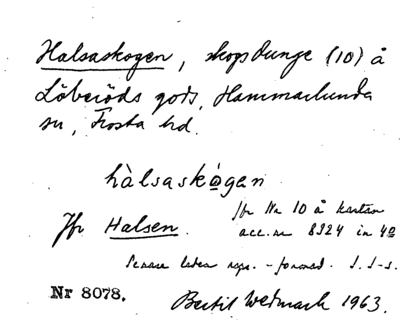 Halsaskogen, skogsdunge (10) å
Löberöds gods, Hammarlunda
sn, Frosta hd.
hàlsaskògen
Jfr Halsen.
jfr Nr 10 å kartan
acc.nr 8324 in 4º
Senare leden nyss. - fonemat. I. I-s.
Nr 8078.
Bertil Wetmark 1963.